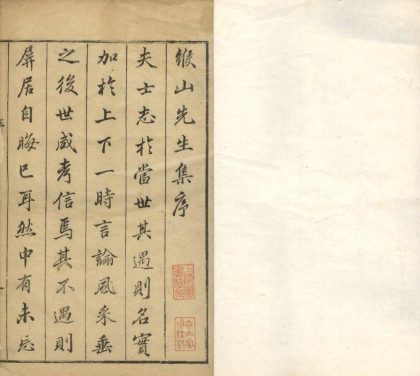 緱山先生集序
夫士志於當世其遇則名實
加於上下一時言論風采垂
之後世咸考信焉其不遇則
屏居自晦已耳然中有未忘